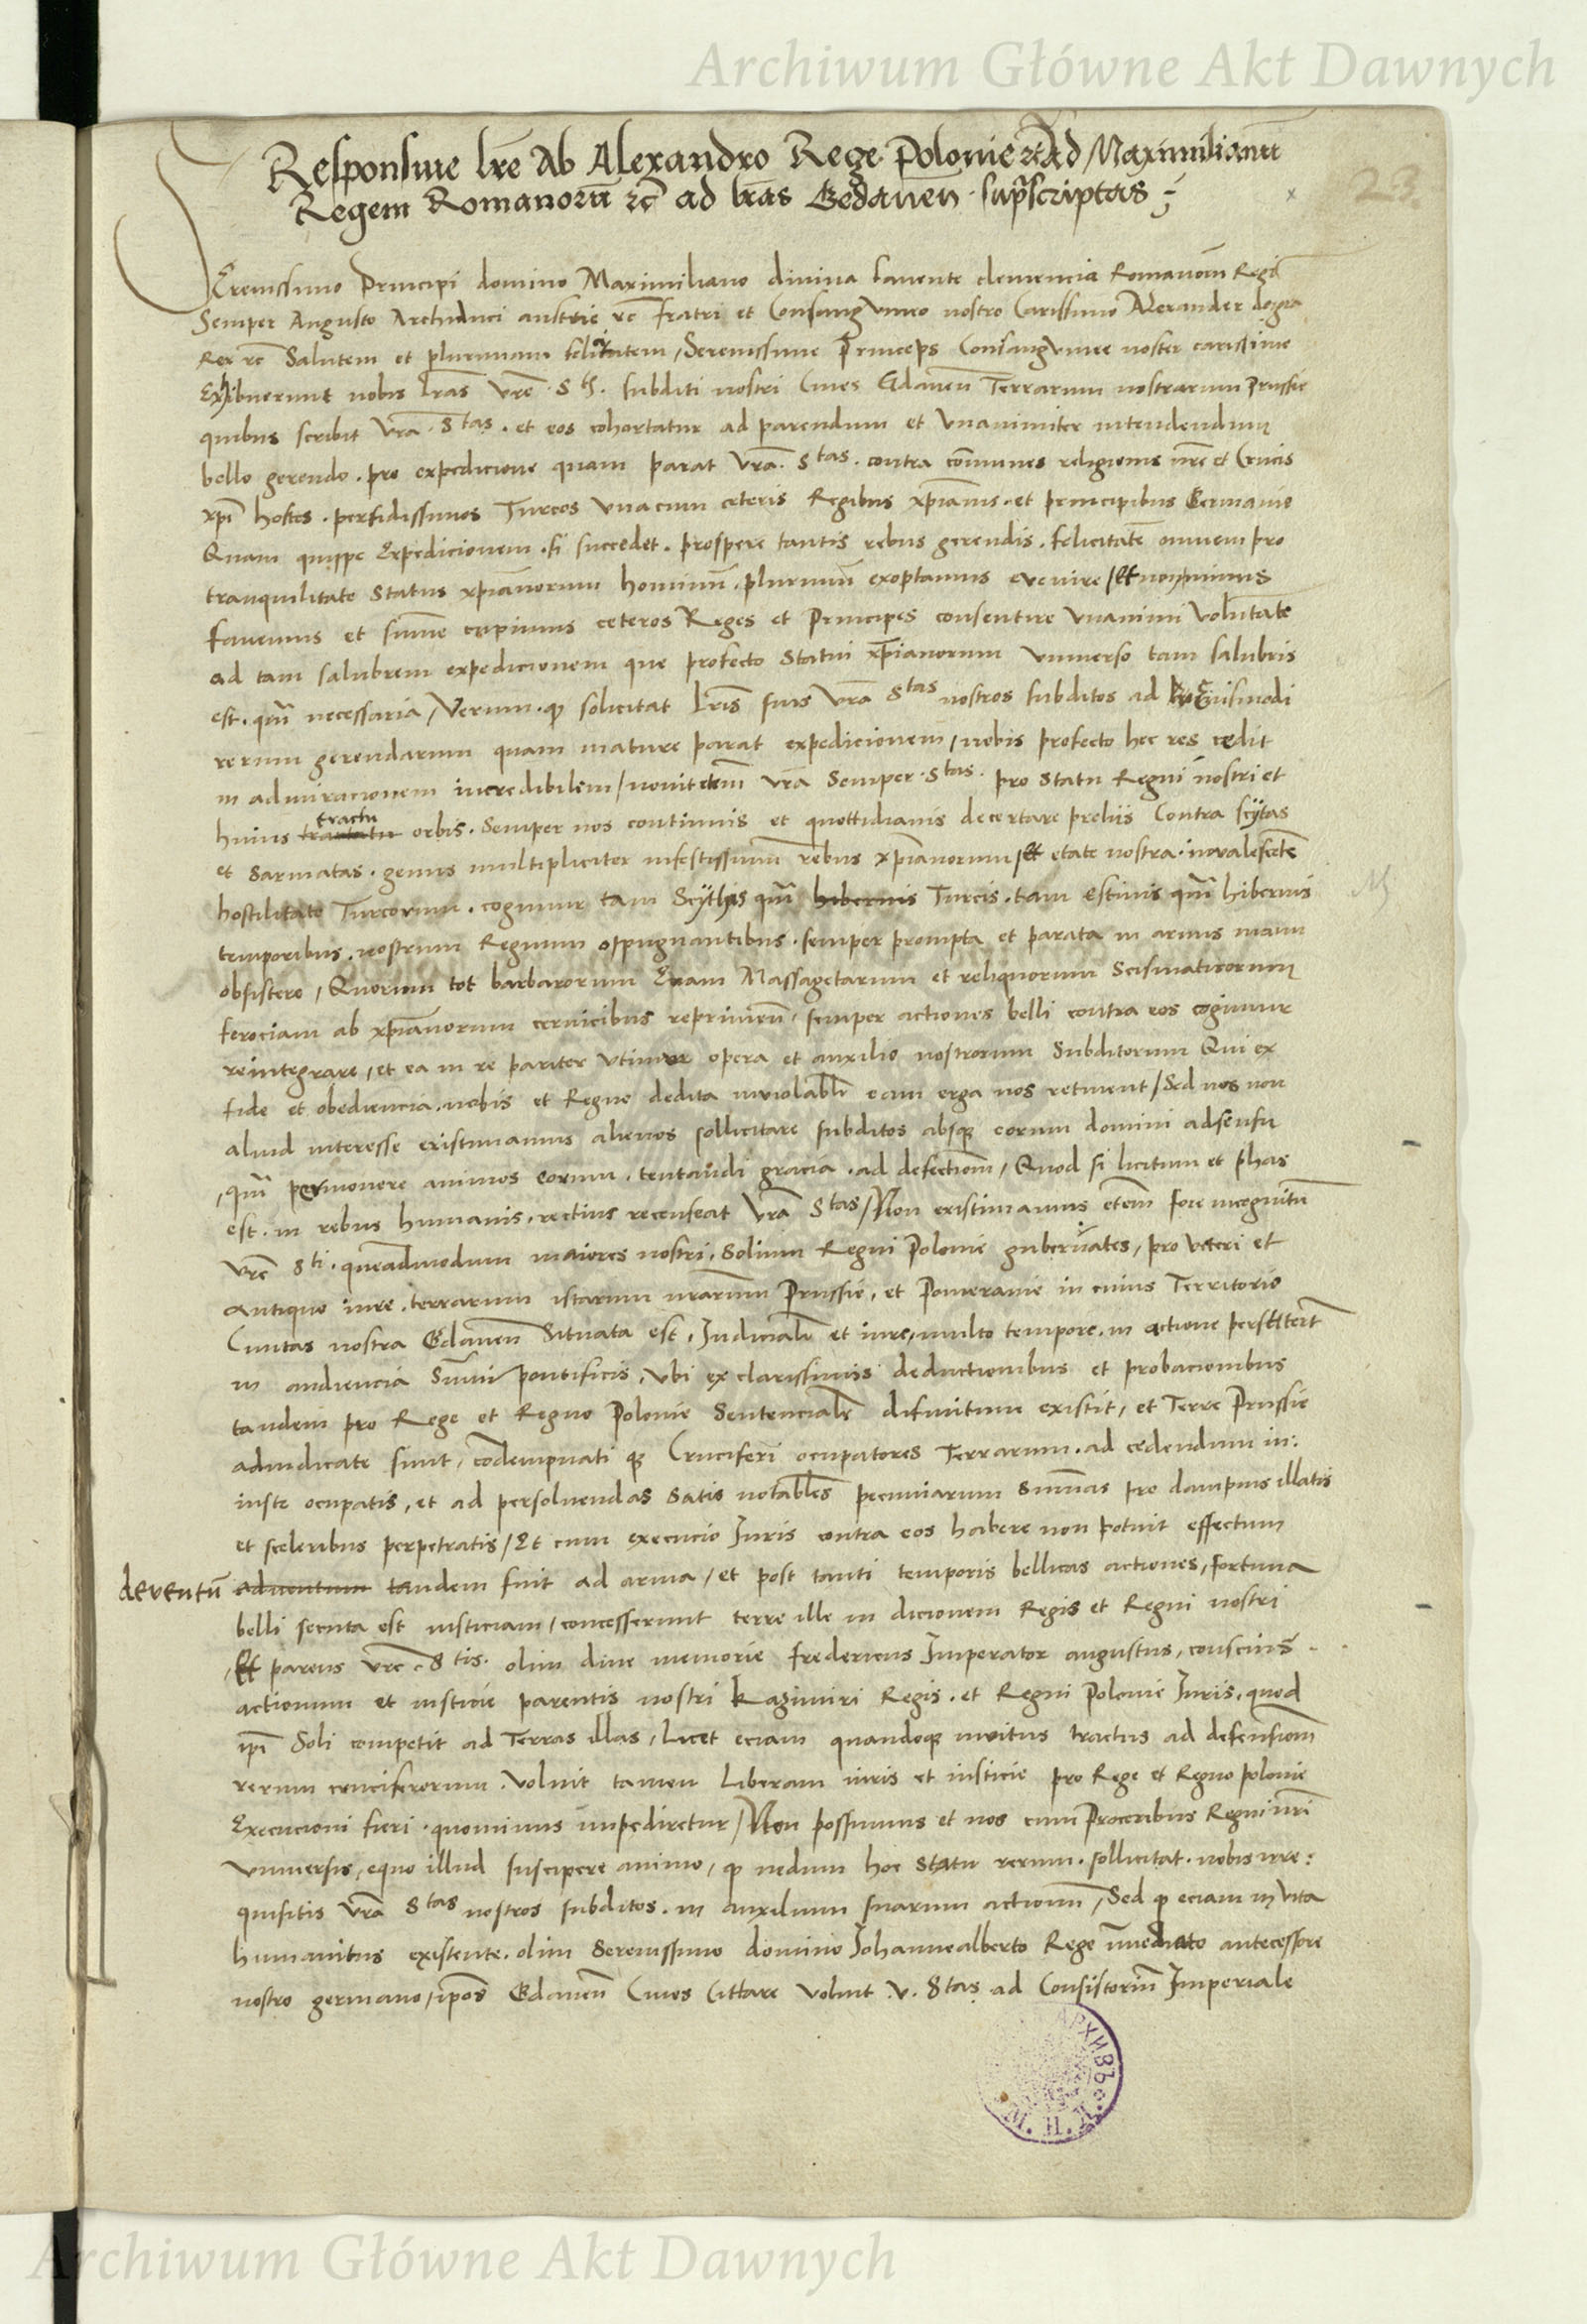 Archiwum Główne Akt Dawnych
Responsive lr̄e Ab Alexandro Rege Polonie ꝛc̄ Ad Maximilianū
Regem Romanorū ꝛc̄ ad lr̄as Gedaneñ supͣscriptas
23.
SErenissimo Principi domino Maximiliano divina favente clemencia Romanoꝝ Regi
Semper Augusto Archiduci austrie ꝛc̄ fratri et Consangvineo nostro Carissimo Alexander dei gra
Rex ꝛc̄ Salutem et plurimam felicitatem / Serenissime Princeps Consangvinee noster carissime
Exhibuerunt nobis lr̄as Vr̄e S tis. subditi nostri Cives Gdaneñ Terrarum nostrarum Prussie
quibus scribit Vr̄a Stas. et eos cohortatur ad parendum et Vnanimiter intendendum
bello gerendo. pro expedicione quam parat Vr̄a. Stas. contra com̄unes religionis nr̄e et Crucis
xp̄i hostes. perfidissimos Turcos Vnacum ceteris Regibus xp̄ianis. et principibus Germanie
Quam quippe Expedicionem. si succedet. prospere tantis rebus gerendis. felicitatē omnem pro
tranquilitate Status xp̄ianorum hominū. plurimū exoptamus evenire / Et non minus
favemus et sum̄e cupimus ceteros Reges et Principes consentire Vnanimi Volūtate
ad tam salubrem expedicionem que profecto Statui xp̄ianorum Vniverso tam salubris
est. qm̄ necessaria / Verum. qꝫ solicitat lr̄is suis Vr̄a Stas nostros subditos ad huiusmodi
rerum gerendarum quam mature parat expedicionem / nobis profecto hec res cedit
in admiracionem incredibilem / novit etem̄ Vr̄a Semper. Stas. pro Statu Regni nostri et
huius tractatu tractu orbis. Semper nos continuis et quottidianis decertare preliis Contra Scÿtas
et Sarmatas. genus multipliciter infestissimū rebus xp̄ianorum / Et etate nostra. invalescente
hostilitate Turcorum. cogimur tam Scÿthis qm̄ hibernis Turcis. tam estivis qm̄ hibernis
temporibus. nostrum Regnum oppugnantibus. semper prompta et parata in armis manu
obsistere / Quorum tot barbarorum Eciam Massagetarum et reliquorum Scismaticorum
ferociam ab xp̄ianorum cervicibus reprimendū. semper actiones belli contra eos cogimur
reintegrare, et ea in re pariter Vtimur opera et auxilio nostrorum Subditorum Qui ex
fide et obediencia. nobis et Regno dedita inviolabilr̄ eam erga nos retinent / Sed nos non
aliud interesse existimamus alienos sollicitare subditos absqꝫ eorum domini adsensu
, qm̄ permovere animos eorum. tentandi gracia. ad defectionē, Quod si licitum et phas
est. in rebus humanis. rectius recenseat Vr̄a Stas / Non existimamus etem̄ fore incognitū
Vr̄e Sti. queadmodum maiores nostri, Solium Regni Polonie gubernātes, pro Veteri et
Antiquo iure. terrarum istarum nr̄arum Prussie, et Pomeranie in cuius Territorio
Civitas nostra Gdaneñ Situata est, Iudicialr̄ et iure, multo tempore. in actione perstiterūt
in audiencia Sum̄i pontificis, Vbi ex clarissimis deductionibus et probacionibus
tandem pro Rege et Regno Polonie Sentencialr̄ difinitum existit, et Terre Prussie
adiudicate sunt, condempnati qꝫ Cruciferi ocupatores Terrarum. ad cedendum in:
iuste ocupatis, et ad persolvendas Satis notabiles pecuniarum Sum̄as pro dampnis illatis
et sceleribus perpetratis / Et cum execucio Iuris contra eos habere non potuit effectum
deventū adventum tandem fuit ad arma, et post tanti temporis bellicas actiones, fortuna
belli secuta est iusticiam, concesserunt terre ille in dicionem Regis et Regni nostri
, Et parens Vr̄e Stis. olim dive memorie fredericus Imperator augustus, conscius
actionum et iusticie parentis nostri Kazimiri Regis. et Regni Polonie Iuris, quod
ip̄i Soli competit ad Terras illas, licet eciam quandoqꝫ invitus tractus ad defensionē
rerum cruciferorum. Voluit tamen Liberam iuris et iusticie pro Rege et Regno polonie
Execucioni fieri. quominus impediretur / Non possumus et nos cum Proceribus Regni nr̄i
Vniversis, equo illud suscipere animo, qꝫ nedum hoc statu rerum. sollicitat. nobis irre:
quisitis Vr̄a Stas nostros subditos. in auxilium suarum actionū, Sed qꝫ eciam in Vita
humanitus existente. olim Serenissimo domino Johannealberto Rege im̄ediato antecessore
nostro germano, ip̄os Gdaneñ Cives Cittare Voluit V. Stas. ad Consistoriū Imperiale
АРХИВЪ
Archiwum Główne Akt Dawnych